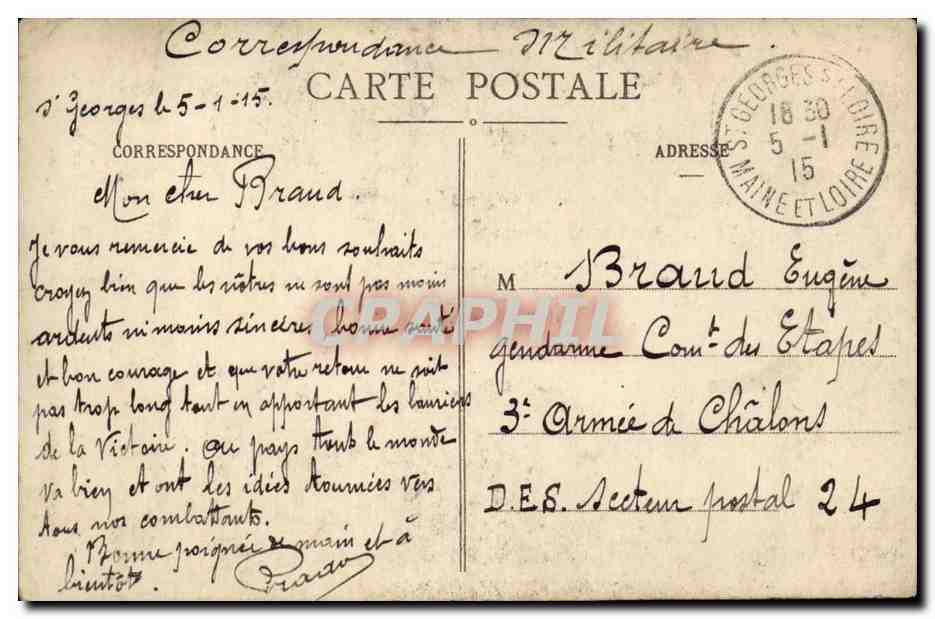 Correspondance Militaire.
CARTE POSTALE
St Georges le 5-1-15.
CORRESPONDANCE
Mon cher Braud.
Je vous remercie de vos bons souhaits
croyez bien que les nôtres ne sont pas moins
ardents ni moins sincères, bonne santé
et bon courage et que votre retour ne soit
pas trop long tout en apportant les lauriers
de la Victoire. Au pays tout le monde
va bien et ont les idées tournées vers
tous nos combattants.
Bonne poignée de main et à
bientôt.
ADRESSE
ST GEORGES S/ LOIRE
18 30
5 -1
15
MAINE ET LOIRE
M Braud Eugène
gendarme Comt des Etapes
3e Armée de Châlons
D.E.S. Secteur postal 24
CPAPHIL